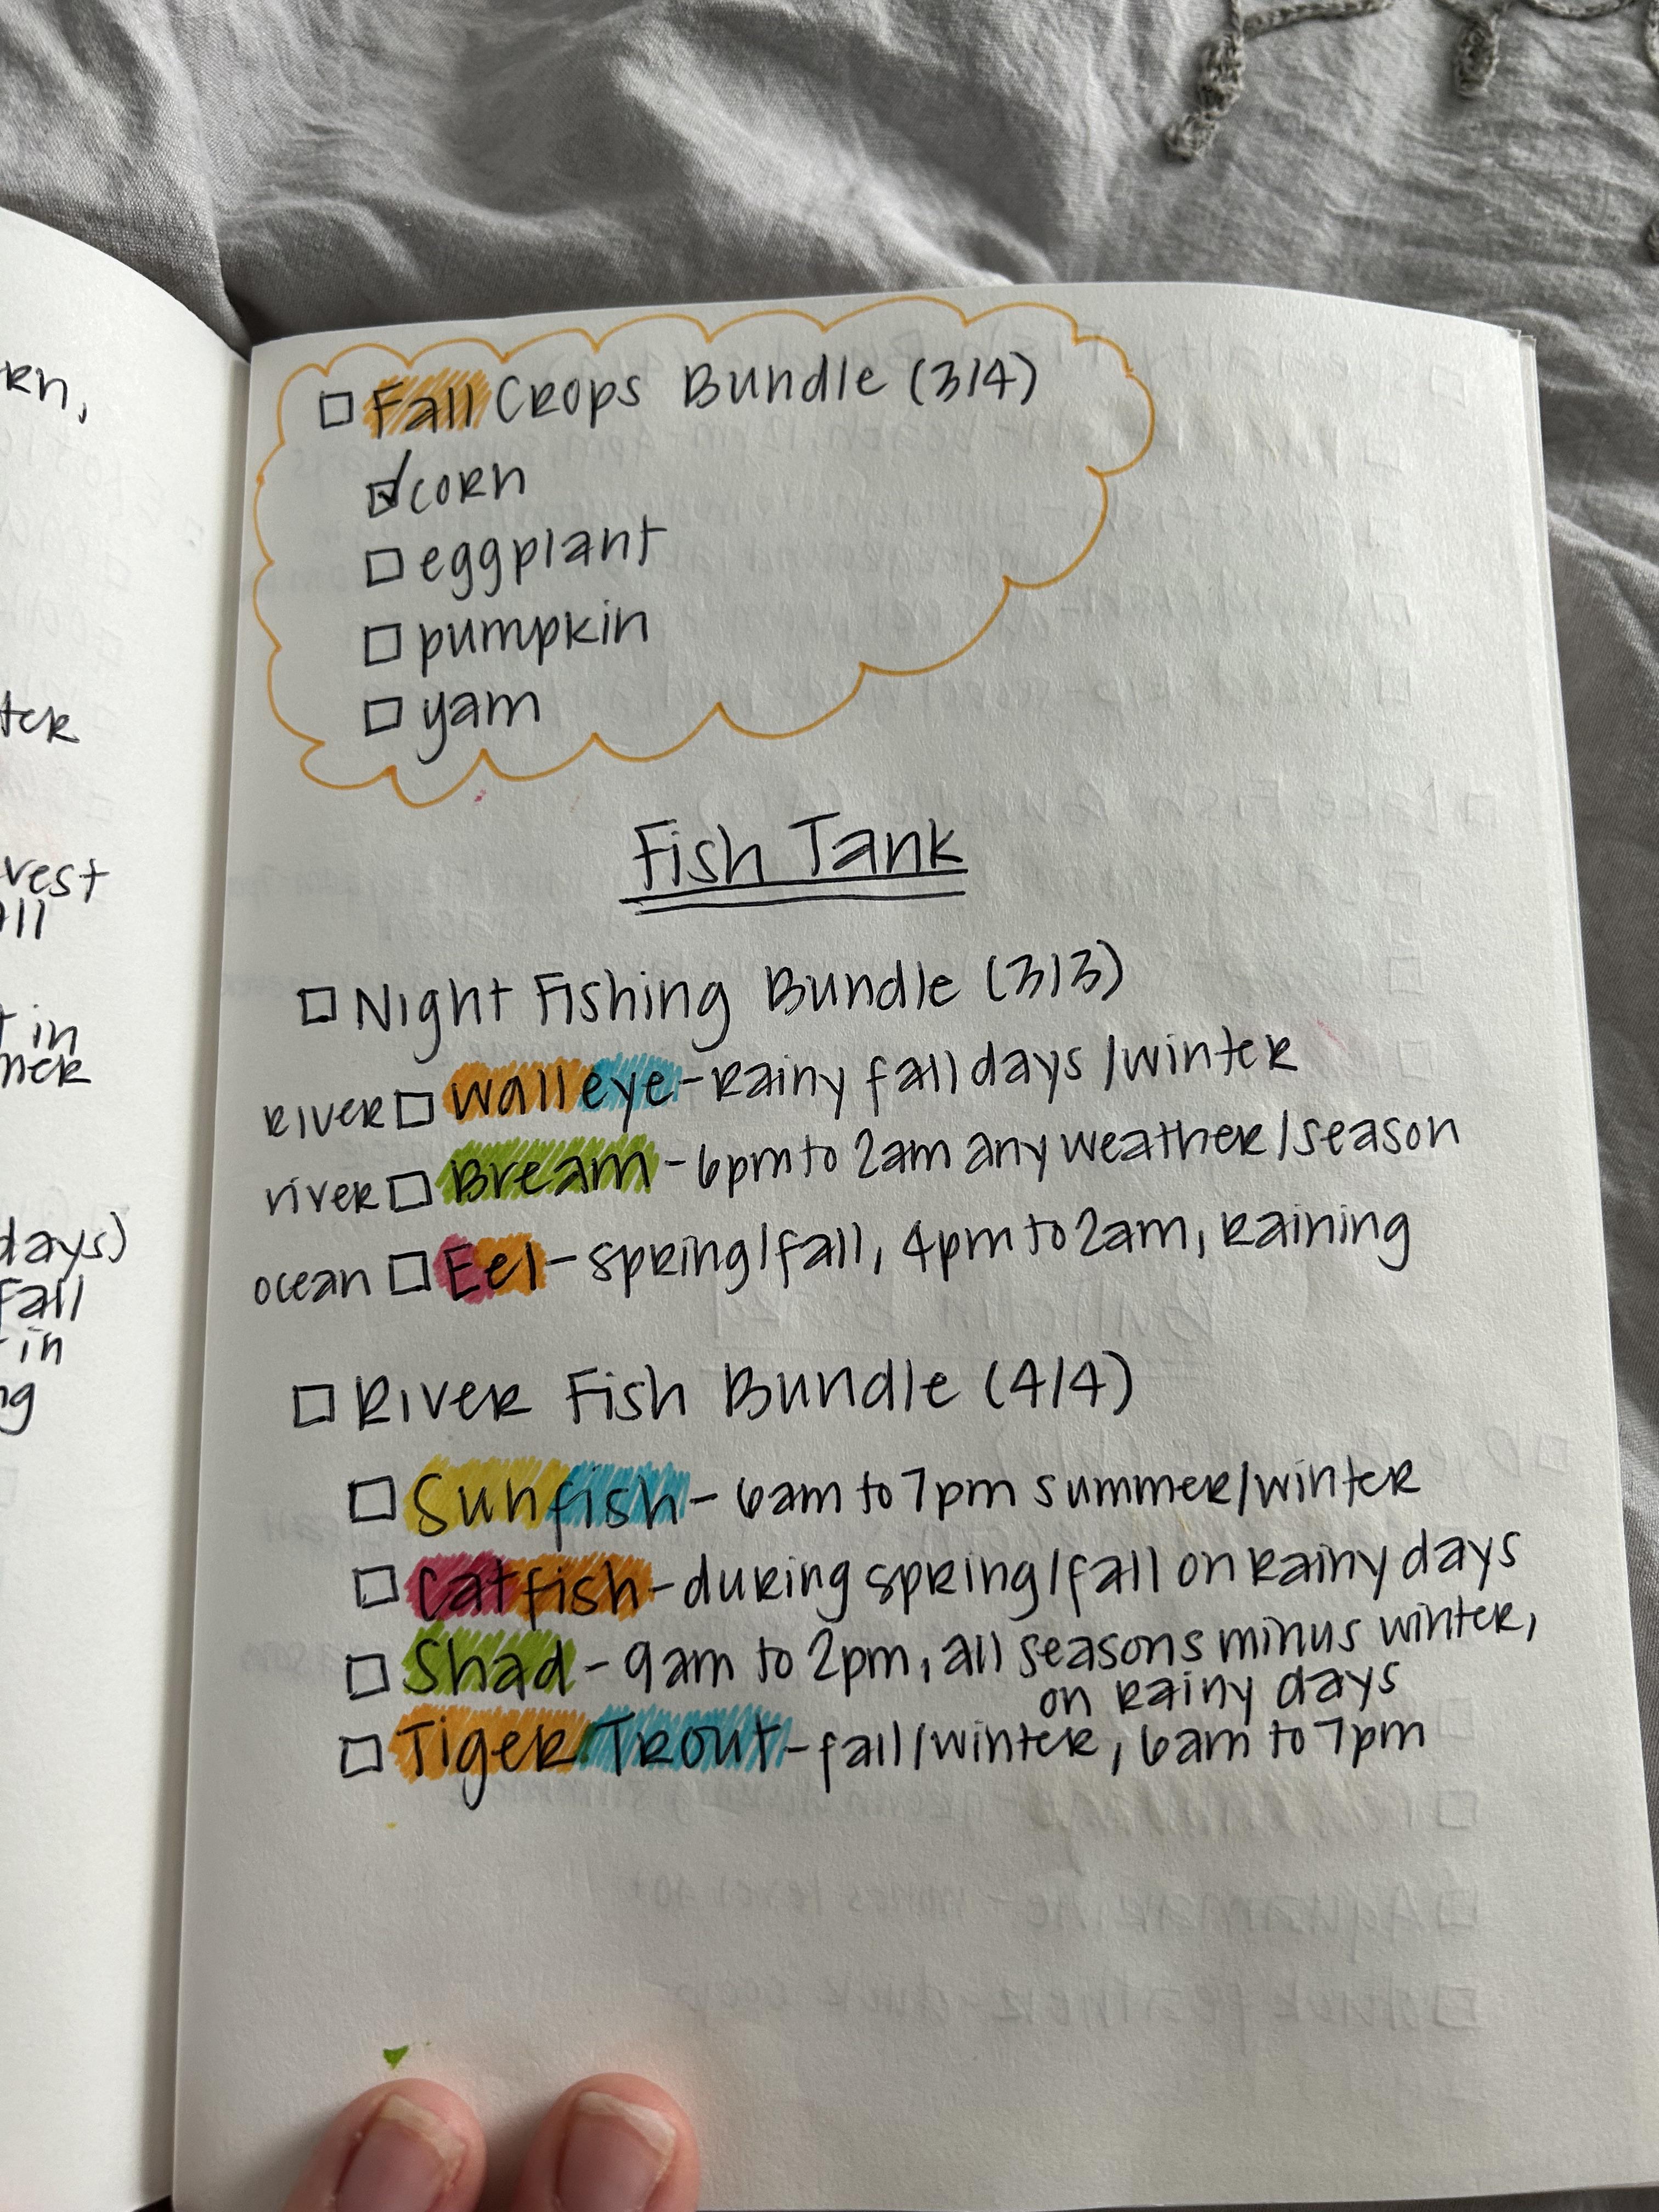 RN,
tER
vest
all
t in
mER
days)
Fall
in
ng
□ Fall CROps Bundle (3/4)
☑ CORN
□ eggplant
□ pumpkin
□ yam
Fish Tank
□ Night Fishing Bundle (3/3)
RIVER □ walleye - Rainy fall days / winter
RiveR □ Bream - 6pm to 2am any weather / season
ocean □ Eel - spring/fall, 4pm to 2am, Raining
□ RIVER Fish Bundle (4/4)
□ Sunfish - 6am to 7pm summer/winter
□ Catfish - during spring/fall on Rainy days
□ Shad - 9am to 2pm, all seasons minus winter,
on Rainy days
□ Tiger Trout - fall/winter, 6am to 7pm